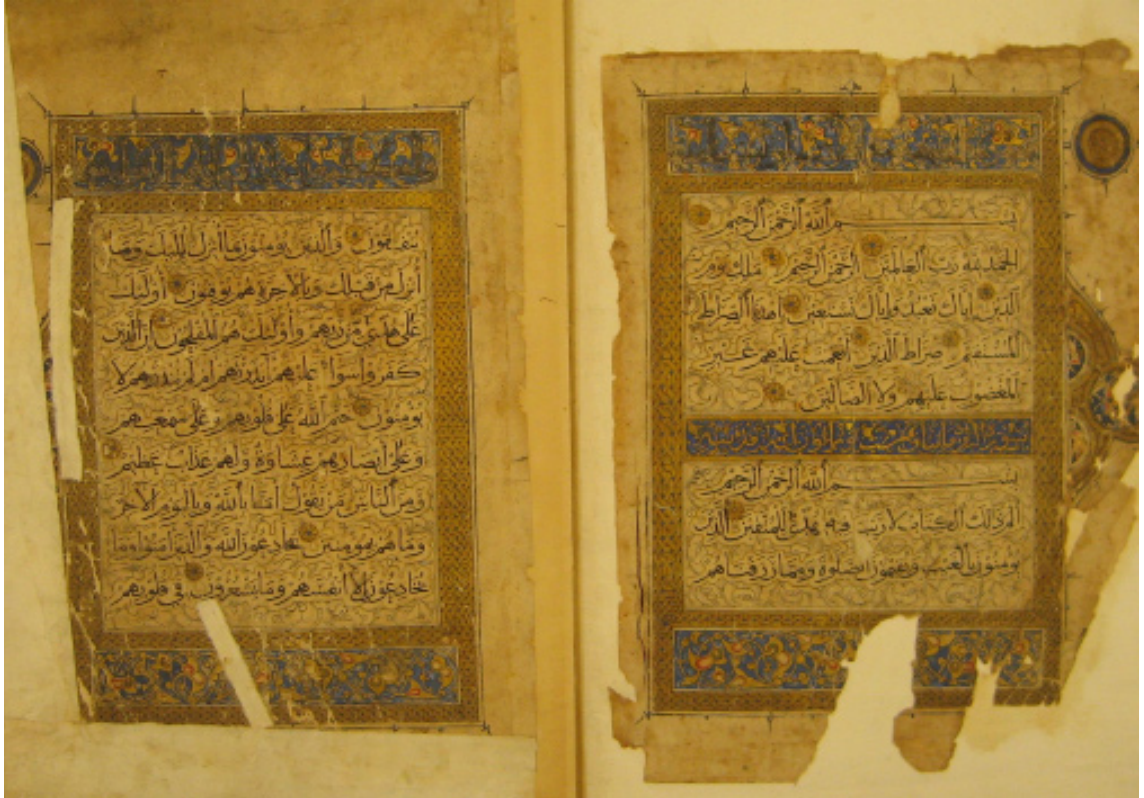 بسم الله الرحمن الرحيم
الحمد لله رب العالمين الرحمن الرحيم ملك يوم
الدين اياك نعبد واياك نستعين اهدنا الصراط
المستقيم صراط الذين انعمت عليهم غير
المغضوب عليهم ولا الضالين
بسم الله الرحمن الرحيم
الم ذلك الكتاب لا ريب فيه هدى للمتقين الذين
يومنون بالغيب ويقيمون الصلوة ومما رزقناهم
ينفقون والذين يومنون بما انزل اليك وما
انزل من قبلك وبالاخرة هم يوقنون اولئك
على هدى من ربهم واولئك هم المفلحون ان الذين
كفروا سواء عليهم ءانذرتهم ام لم تنذرهم لا
يومنون ختم الله على قلوبهم وعلى سمعهم
وعلى ابصارهم غشاوة ولهم عذاب عظيم
ومن الناس من يقول امنا بالله وباليوم الاخر
وما هم بمومنين يخادعون الله والذين امنوا وما
يخادعون الا انفسهم وما يشعرون في قلوبهم